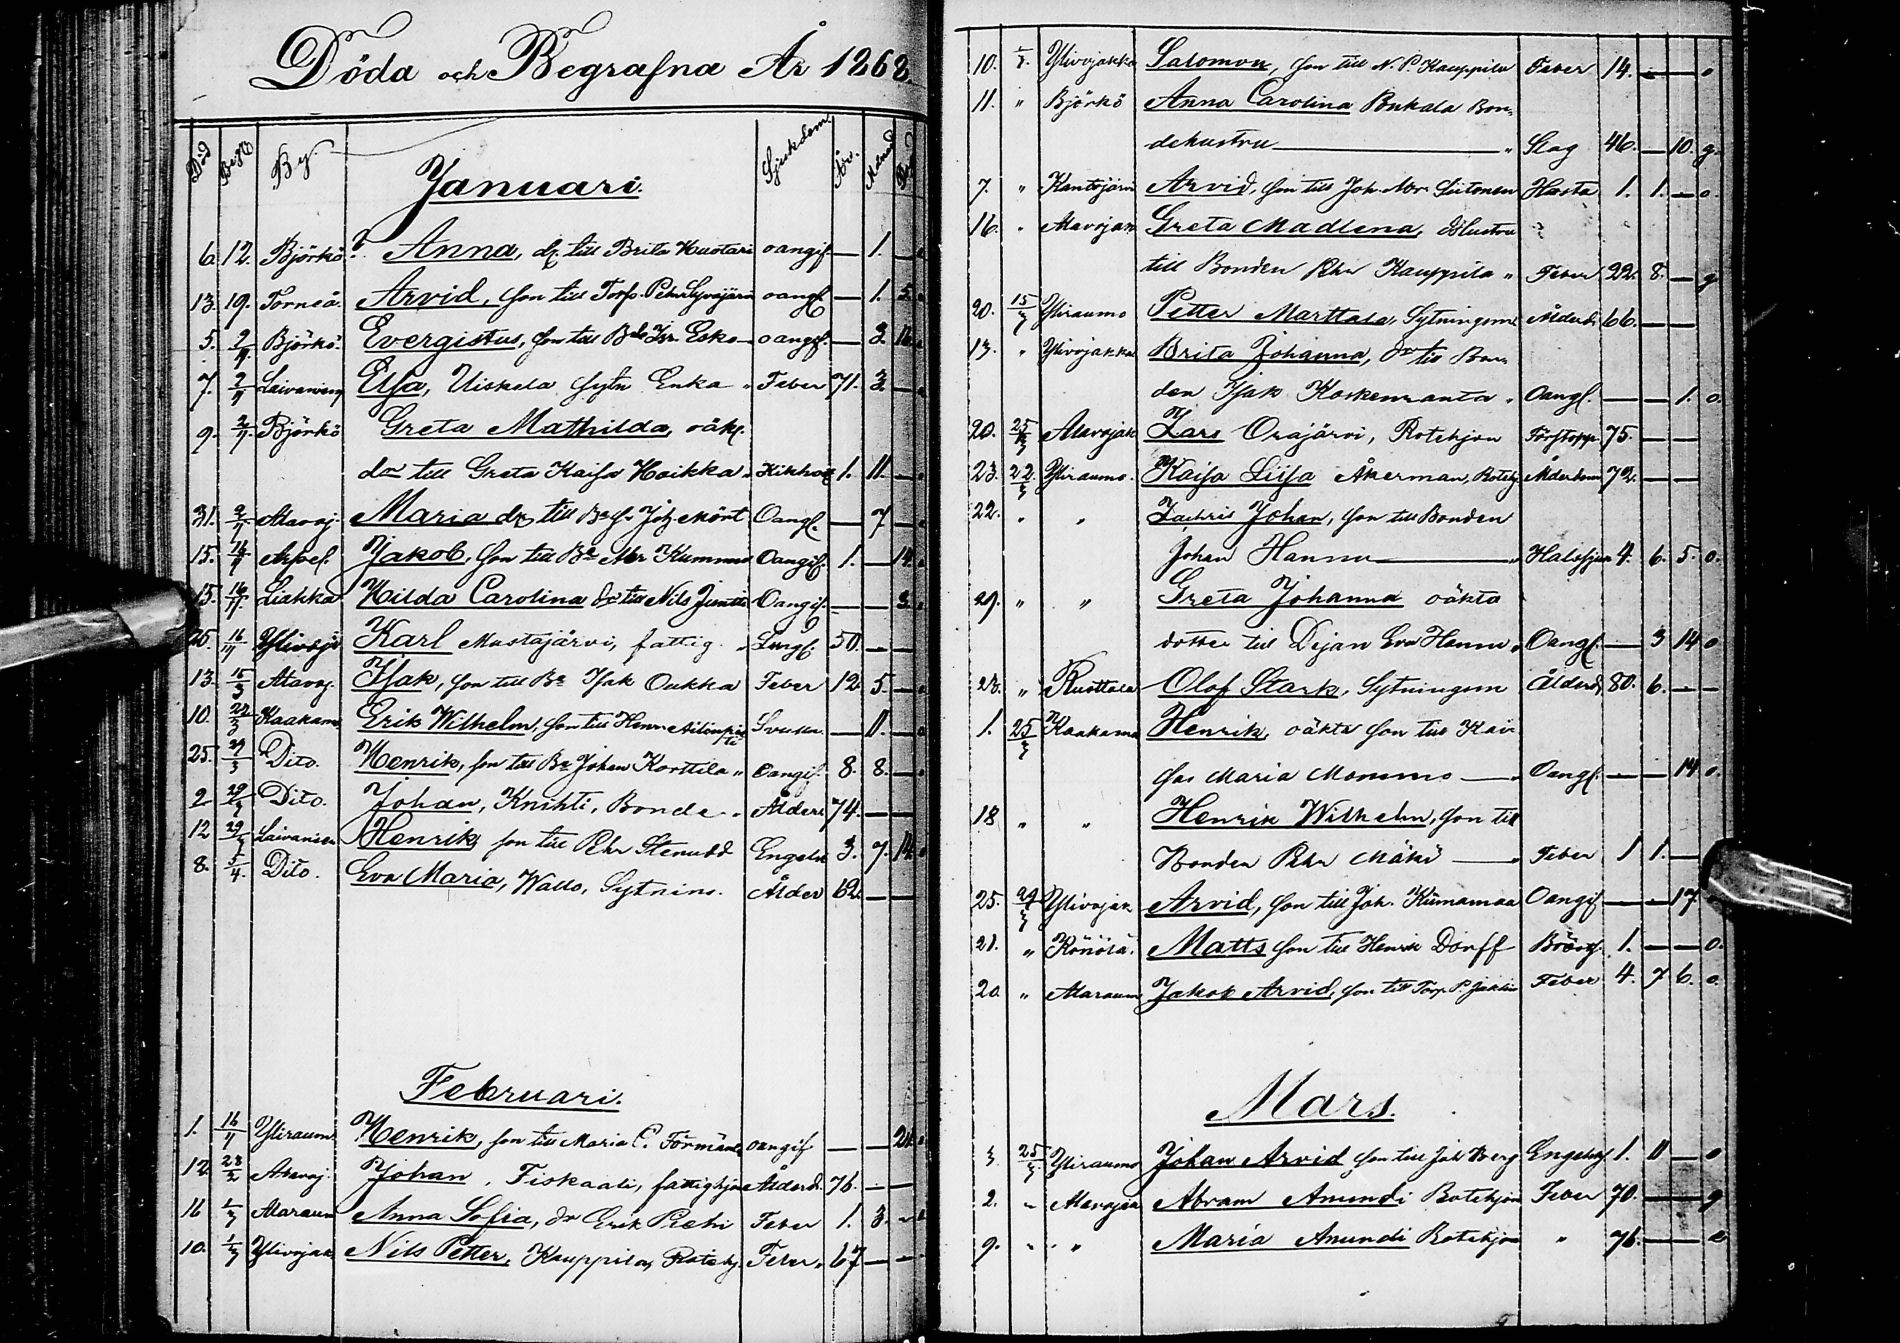 Döda och Begrafna År 1868.
Död Begr By. Sjukdom År. Månad
Januari.
6. 12. Björkö Anna, dr till Brita Kustari oangif. — 1. —
13. 19. Torneå. Arvid, son till Torp. Pehr Syväjärvi oangf. — 1. 5.
5. 2/4 Björkö. Evergistus, son till Bde Isr. Esko oangf. — 3. 16.
7. 2/4 Laivaniemi Elsa, Uiskela Sytn Enka " Feber 71. 3. —
9. 2/4. Björkö Greta Mathilda, oäk.
dr till Greta Kaisa Hoikka " Kikhost 1. 11. —
31. 2/4 Alavoj. Maria dr till Joh. Oangf. — 7 —
15. Jakob, son till Bn Abr Kummu Oangif. 1. — 14.
15. 16/4. Liakka Hilda Carolina dr till Nils Juntti Oangif. — — 3.
25. Ylivoja Karl Mustajärvi, fattig. " Lungf. 50. — —
13. 15/3 Alavoj. Isak, son till Bn Isak Oukka Feber 12. 5. —
10. 22/3 Kaakama Erik Wilhelm, son till Henr. — 11. —
25. 29/3 Dito. Henrik, son till Bn Johan Korttila " Oangif. 8. 8. —
2 29/3 Dito. Johan, Knihti, Bonde. " Ålder 74. — —
12 29/3 Laivaniem Henrik son till Pehr Stenudd Engels. 3. 7. 14.
8. 5/4. Dito. Eva Maria, Wallo, Sytnins. Ålder 62. — —
Februari.
1. 16/4 Yliraum. Henrik, son till Maria C. Förmänn oangif — — 21.
12. 23/2 Alavoj. Johan, Fiskaali, fattighjon Ålderd. 76. — —
16 1/3 Alaraum Anna Sofia, dr Erik Feber 1. 3. —
10. 1/3 Ylivojak. Nils Petter, Kauppila, Rotehj. Feber. 67 — —
10. 1/3. Ylivojakka Salomon, son till N. P. Kauppila Feber 14. — — o
11. " Björkö Anna Carolina Bon-
dehustru — " Slag 46. — 10. g.
7. " Kantojärvi Arvid, son till Joh. Abr. Hosta 1. 1. — o.
16. " Alavojak Greta Madlena,
till Bonden Pehr Kauppila " Feber 22. 8. — g
20. 15/3 Yliraumo Petter Marttala, Sytningsm. Ålderd. 66. — —
13. " Ylivojakka Brita Johanna, dr till Bon-
den Isak Koskenranta " Oangf. — — 1. o.
20. Alavojak Lars Orajärvi, Rotehjon Förstopp. 75. — —
23. 22/3 Yliraumo. Kaisa Liisa Åkerman, Rotehj. Ålderdom 72. — —
22. " " Zachris Johan, son till Bonden
Johan Hannu — " Halssjuka 4. 6. 5. o.
29. " " Greta Johanna oäkta
dotter till Pijan Eva Hannu " Oangf. — 3 14 o
23. " Ruottala Olof Stark, Sytningsm Ålderd. 80. 6. — —
1. 25/3 Kaakama Henrik, oäkta son till Kai-
sas Maria Mommo — Oangf. — — 14. o.
18 " " Henrik Wilhelm, son till
Bonden Pehr Mäki — " Feber 1 1. —
25. 29/3 Ylivojak Arvid, son till Joh. Kiimamaa Oangif — — 17
21. " Könölä. Matts son till Henrik Dorff Bröstsj. 1. — — o.
20. " Alaraum Jakob Arvid, son till Torp. P. Feber 4. 7 6. o.
Mars.
3. 25/3 Yliraumo Johan Arvid son till Joh Berg Engelsk 1. 11 — o
2. " Alavojak Abram Anundi Rotehjon Feber 70. — — g
9. " " Maria Anundi Rotehjon " 76. — —